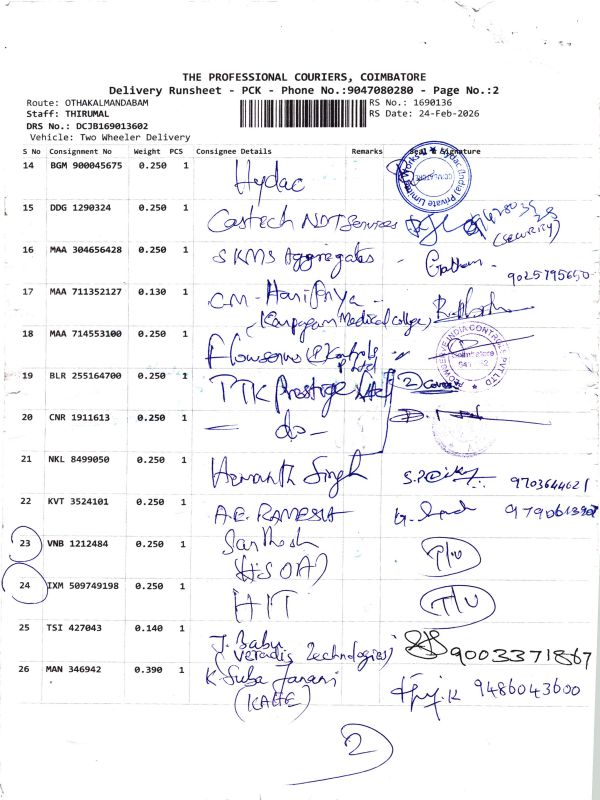 THE PROFESSIONAL COURIERS, COIMBATORE
Delivery Runsheet - PCK - Phone No.:9047080280 - Page No.:2
Route: OTHAKALMANDABAM
RS No.: 1690136
Staff: THIRUMAL
RS Date: 24-Feb-2026
DRS No.: DCJB169013602
Vehicle: Two Wheeler Delivery
S No Consignment No Weight PCS Consignee Details Remarks Seal & Signature
14 BGM 900045675 0.250 1 Hydac
15 DDG 1290324 0.250 1 Castech NDT Services
(SECURITY)
16 MAA 304656428 0.250 1 SKMS Aggregates -
9025795650
17 MAA 711352127 0.130 1 CM-
(Karpagam Medical college)
18 MAA 714553100 0.250 1
19 BLR 255164700 0.250 1 TTK Prestige Ltd 2 Covers
20 CNR 1911613 0.250 1 - do -
21 NKL 8499050 0.250 1 Hemanth Singh 9703644621
22 KVT 3524101 0.250 1 A.E. RAMESH
23 VNB 1212484 0.250 1 Santhosh
24 IXM 509749198 0.250 1 HIT
25 TSI 427043 0.140 1 J. Babu
(Veradis Technologies) 9003371867
26 MAN 346942 0.390 1 K. Suba Janani 9486043600
(KAHE)
2